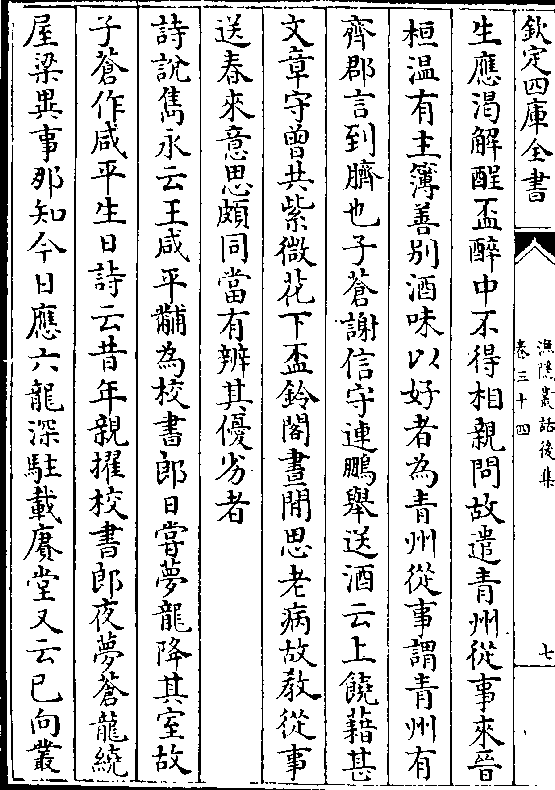 欽定四庫全書
漁隱叢話後集
卷三十四
七
生應渴解酲盃醉中不得相親問故遣青州從事來晉
桓温有主簿善别酒味以好者為青州從事謂青州有
齊郡言到臍也子蒼謝信守連鵬舉送酒云上饒藉甚
文章守曾共紫微花下盃鈴閣晝閒思老病故教從事
送春來意思頗同當有辨其優劣者
詩說雋永云王咸平黼為校書郎日嘗夢龍降其室故
子蒼作咸平生日詩云昔年親擢校書郎夜夢蒼龍繞
屋梁異事那知今日應六龍深駐載賡堂又云已向叢